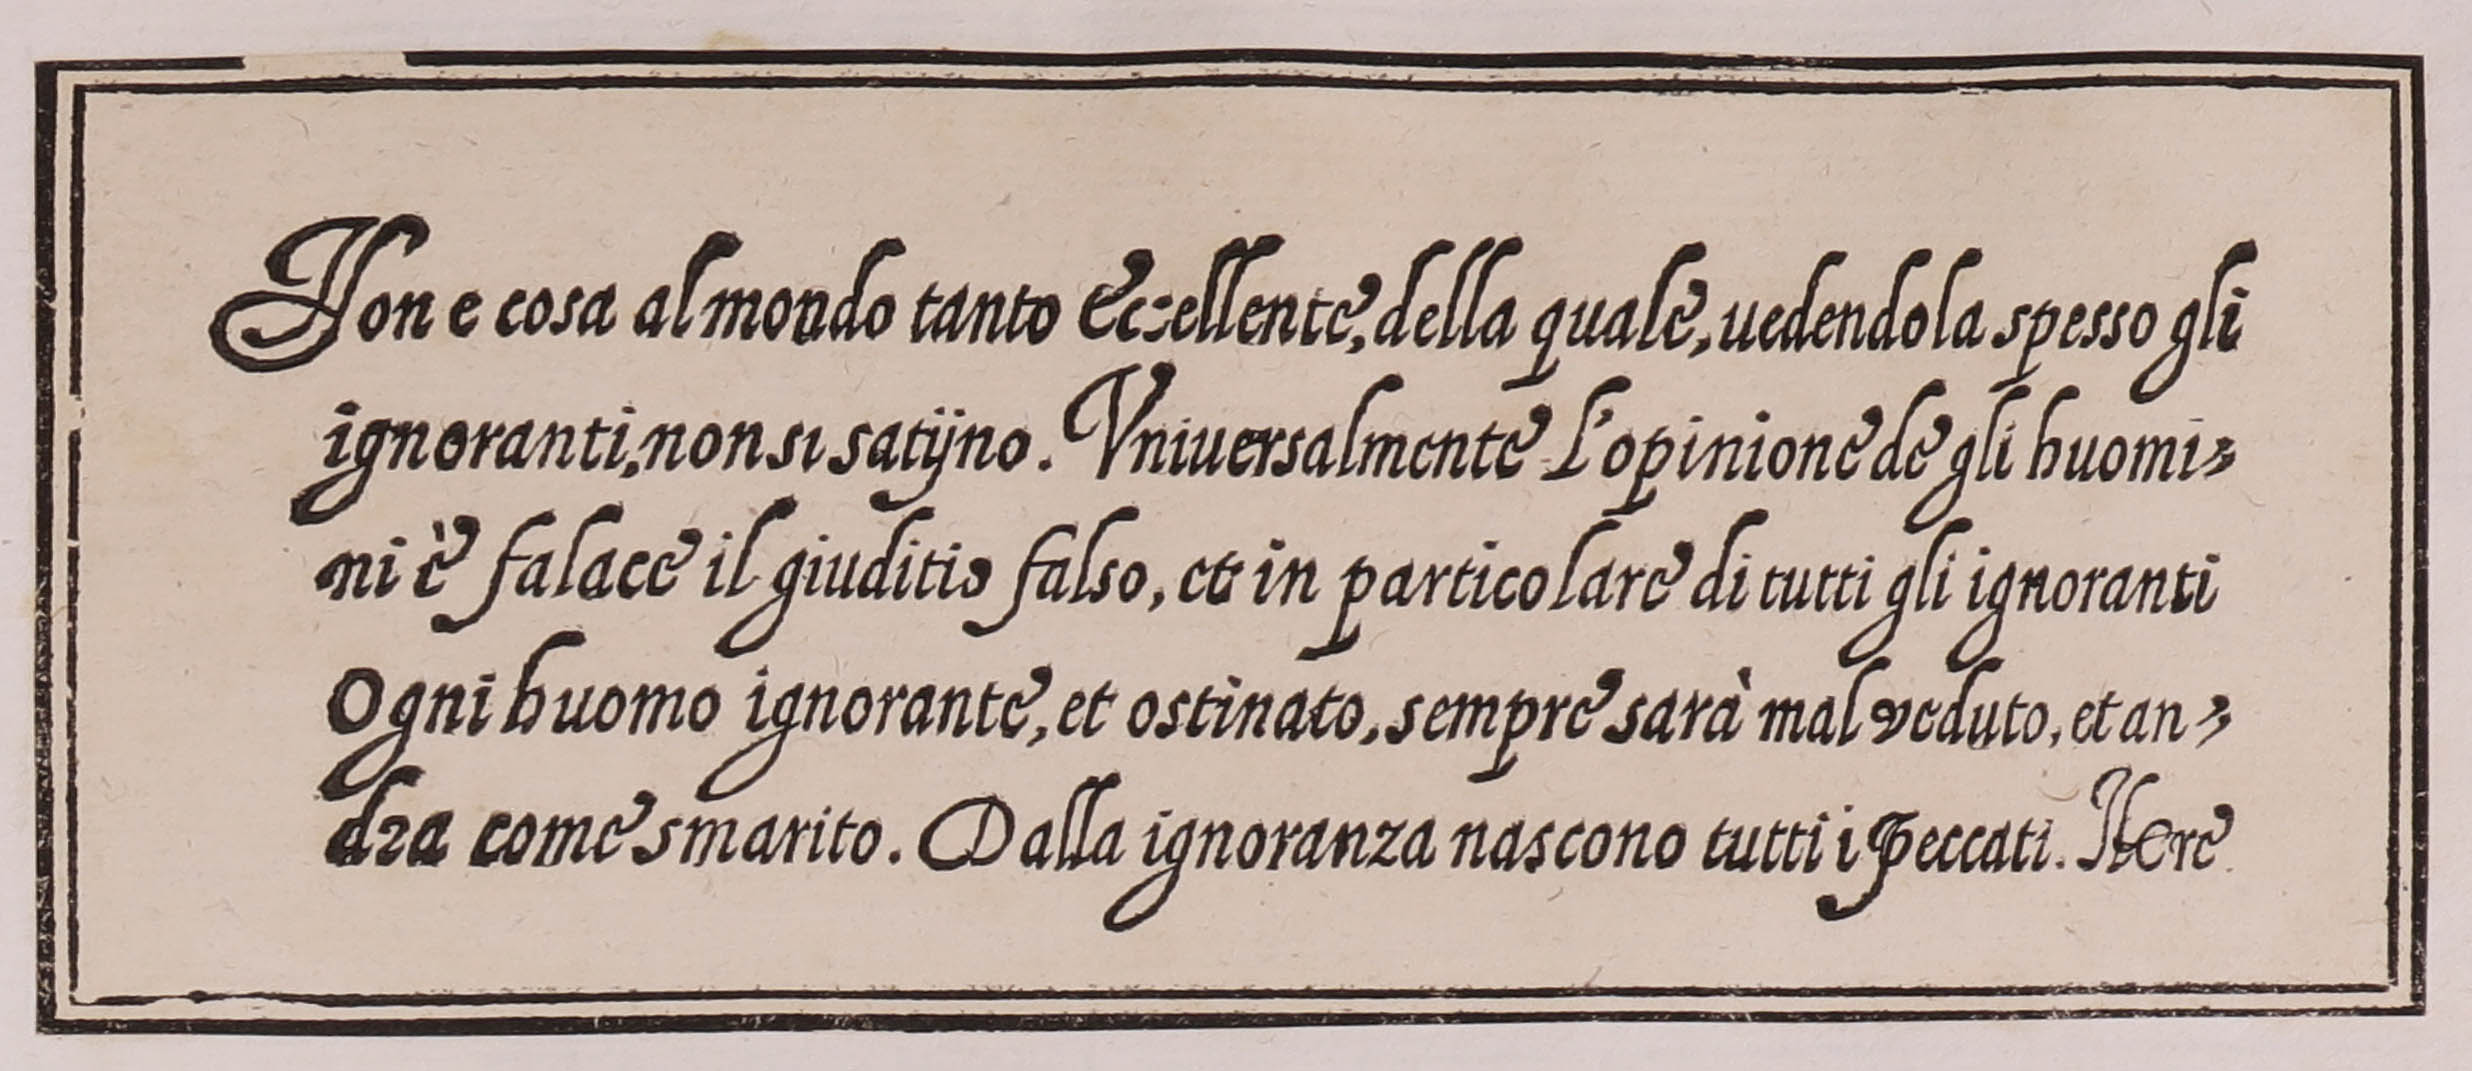 Non e cosa al mondo tanto Eccellente, della quale, uedendola spesso gli
ignoranti, non si satijno. Vniuersalmente L'opinione de gli huomi-
ni è falace il giuditio falso, et in particolare di tutti gli ignoranti
Ogni huomo ignorante, et ostinato, sempre sarà mal veduto, et an-
dra come smarito. Dalla ignoranza nascono tutti i peccati.